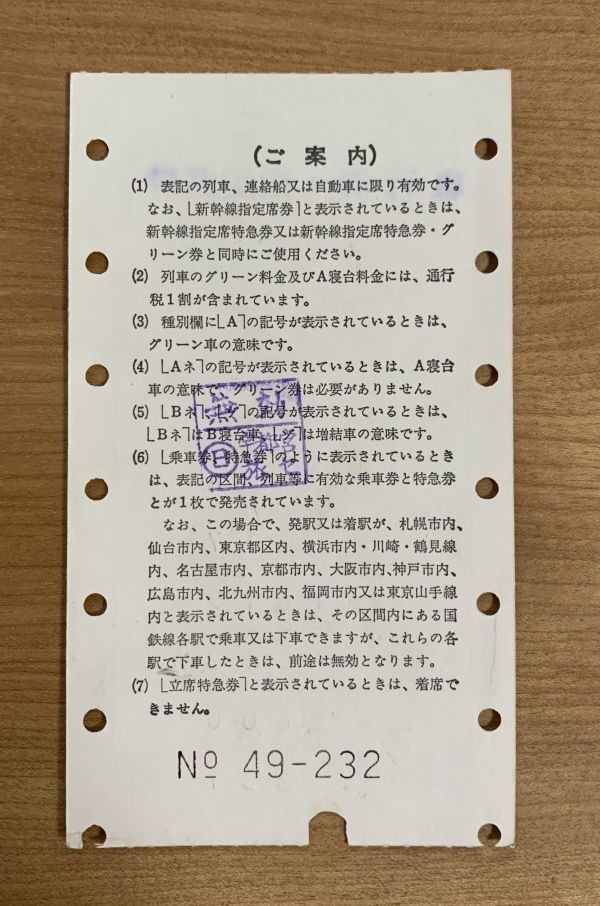 (ご案内)
(1) 表記の列車、連絡船又は自動車に限り有効です。
なお、⌊新幹線指定席券⌉と表示されているときは、
新幹線指定席特急券又は新幹線指定席特急券・グ
リーン券と同時にご使用ください。
(2) 列車のグリーン料金及びA寝台料金には、通行
税1割が含まれています。
(3) 種別欄に⌊A⌉の記号が表示されているときは、
グリーン車の意味です。
(4) ⌊Aネ⌉の記号が表示されているときは、A寝台
車の意味で、グリーン券は必要がありません。
(5) ⌊Bネ⌉、の記号が表示されているときは、
⌊Bネ⌉はB寝台車、は増結車の意味です。
(6) ⌊乗車券・特急券⌉のように表示されているとき
は、表記の区間、列車等に有効な乗車券と特急券
とが1枚で発売されています。
なお、この場合で、発駅又は着駅が、札幌市内、
仙台市内、東京都区内、横浜市内・川崎・鶴見線
内、名古屋市内、京都市内、大阪市内、神戸市内、
広島市内、北九州市内、福岡市内又は東京山手線
内と表示されているときは、その区間内にある国
鉄線各駅で乗車又は下車できますが、これらの各
駅で下車したときは、前途は無効となります。
(7) ⌊立席特急券⌉と表示されているときは、着席で
きません。
無効
日
№ 49-232